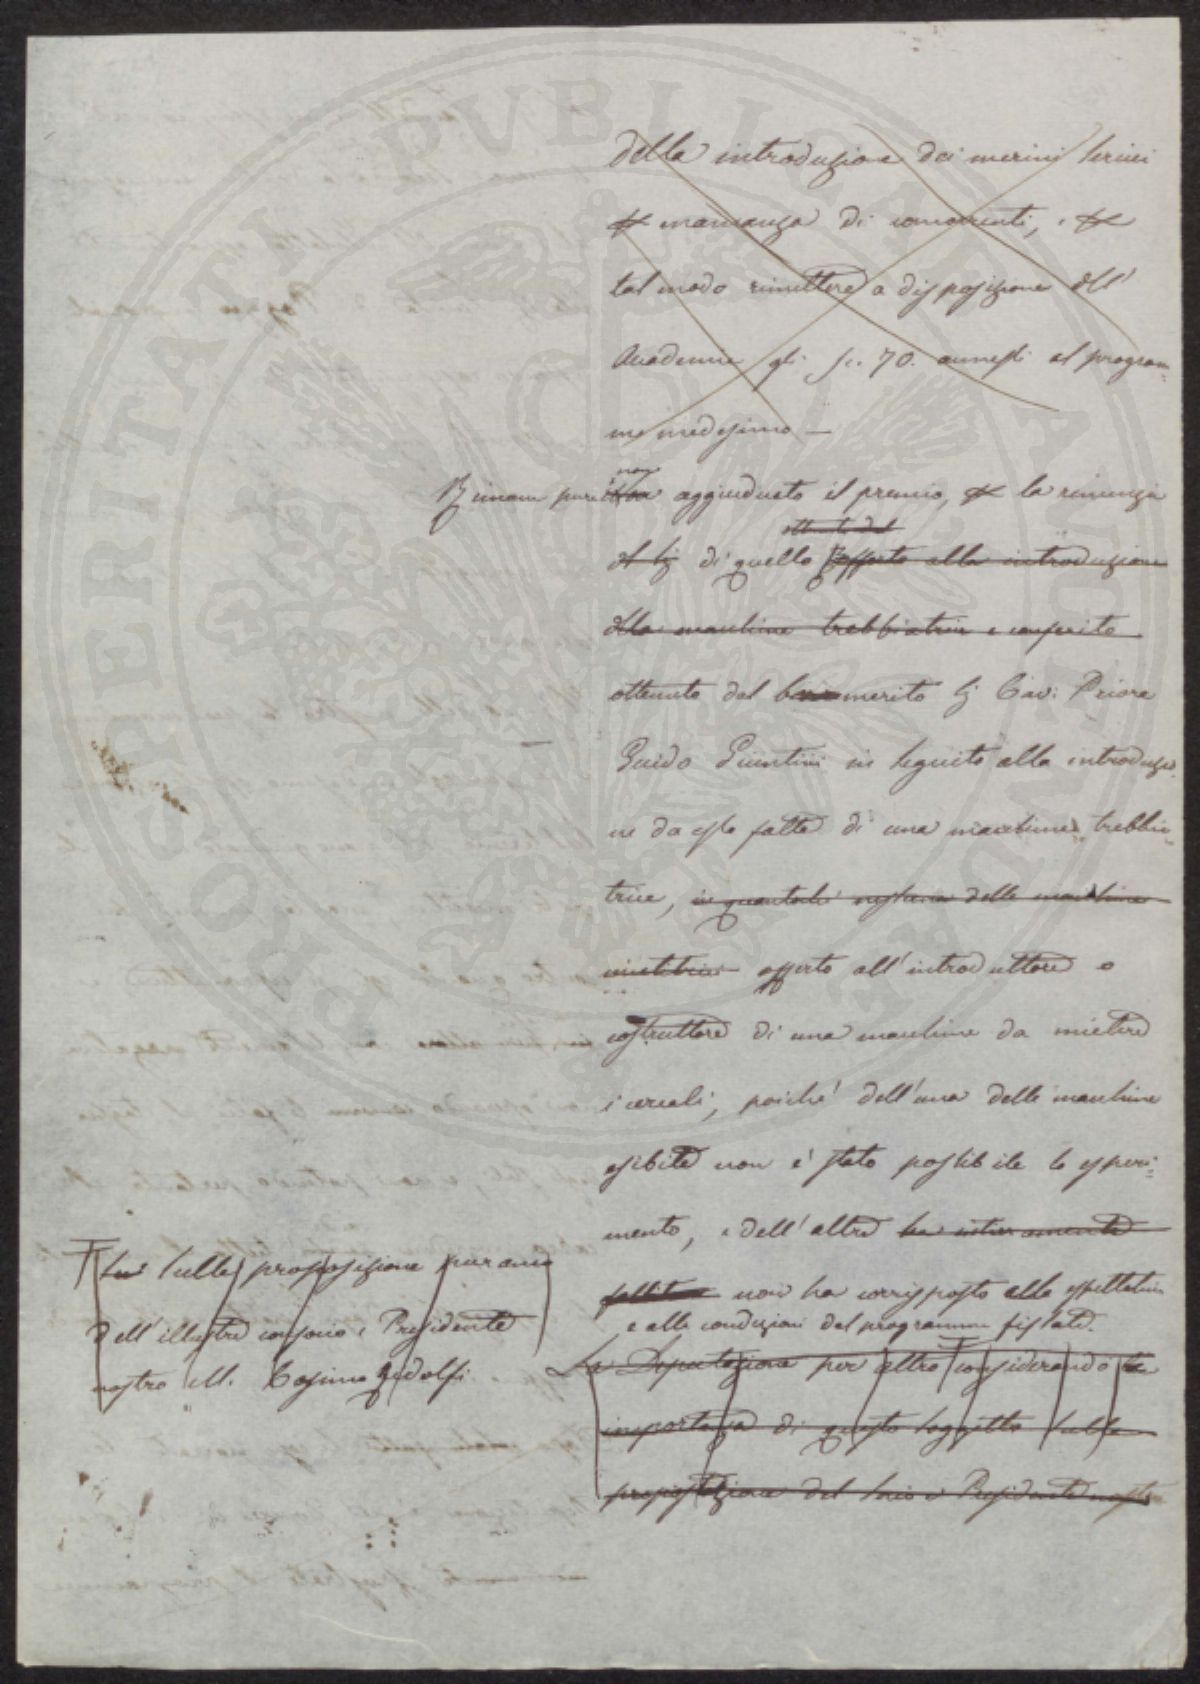 della introduzione dei merini
mancanza di concorrenti, e
tal modo rimettere a disposizione dell'
Accademia gli sc. 70. annessi al program-
ma medesimo —
Rimane pure non aggiudicato il premio, la rinunzia
ottenuto dal
di quello offerto alla introduzione
della macchina trebbiatrice e conferito
ottenuto dal benemerito Sig Cav: Priore
Guido Giuntini in seguito alla introduzio
ne da esso fatta di una macchina trebbia-
trice, delle macchine
mietitrici offerto all'introduttore o
costruttore di una macchina da mietere
i cereali, poiché dell'una delle macchine
esibite non è stato possibile lo speri-
mento, e dell'altra ha interamente
fallito non ha corrisposto alle aspettative
e alle condizioni del programma fissate.
La Deputazione per altro considerando la
importanza di questo soggetto sulla
proposizione del Socio e Presidente nostro
sulla proposizione
dell'illustre consocio e Presidente
nostro M. Cosimo Ridolfi
PROSPERITATI PUBLICAE AUGENDAE